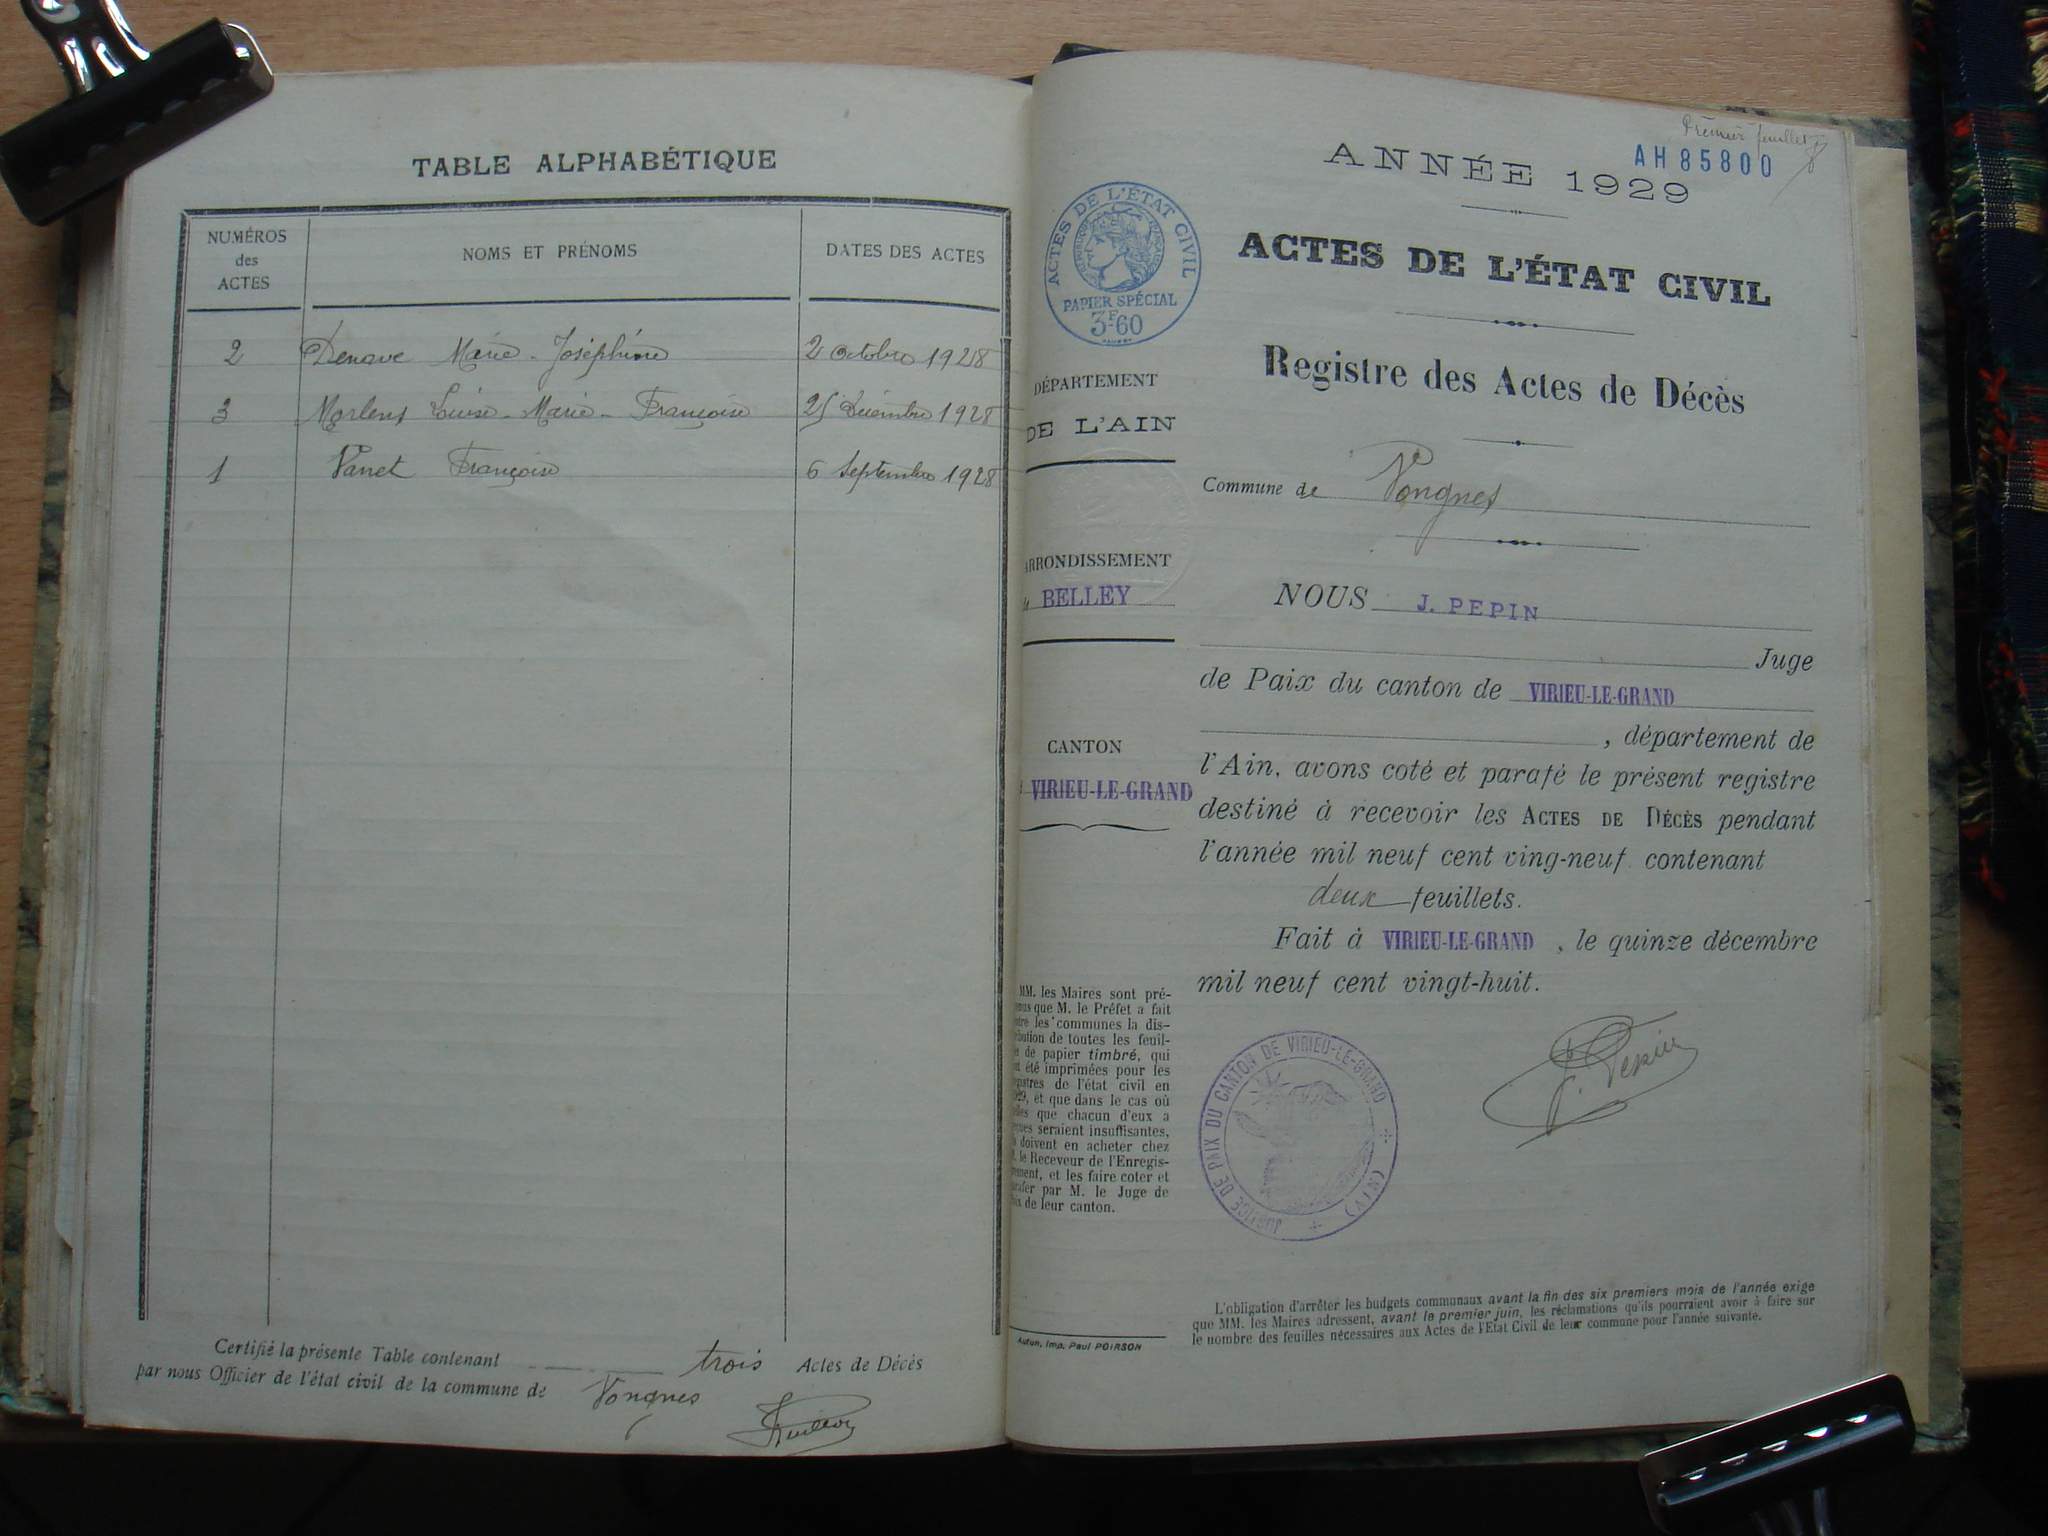 TABLE ALPHABÉTIQUE
NUMÉROS des ACTES
NOMS ET PRÉNOMS
DATES DES ACTES
2 Denave Marie-Joséphine 2 Octobre 1928
3 Morlens Louise-Marie-Françoise 25 Décembre 1928
1 Vanet Françoise 6 Septembre 1928
Certifié la présente Table contenant trois Actes de Décès
par nous Officier de l'état civil de la commune de Vongnes
Premier feuillet
AH85800
ANNÉE 1929
ACTES DE L'ÉTAT CIVIL
RÉPUBLIQUE FRANÇAISE
PAPIER SPÉCIAL
3F60
ACTES DE L'ÉTAT CIVIL
Registre des Actes de Décès
Commune de Vongnes
DÉPARTEMENT
DE L'AIN
ARRONDISSEMENT
BELLEY
CANTON
VIRIEU-LE-GRAND
NOUS J. PEPIN
Juge
de Paix du canton de VIRIEU-LE-GRAND
, département de
l'Ain, avons coté et parafé le présent registre
destiné à recevoir les ACTES DE DÉCÈS pendant
l'année mil neuf cent ving-neuf contenant
deux feuillets.
Fait à VIRIEU-LE-GRAND, le quinze décembre
mil neuf cent vingt-huit.
J. Pepin
JUSTICE DE PAIX DU CANTON DE VIRIEU-LE-GRAND
(AIN)
MM. les Maires sont pré-
que M. le Préfet a fait
les communes la dis-
de toutes les feuil-
de papier timbré, qui
été imprimées pour les
de l'état civil en
et que dans le cas où
que chacun d'eux a
seraient insuffisantes,
doivent en acheter chez
le Receveur de l'Enregis-
et les faire coter et
par M. le Juge de
de leur canton.
Autun, Imp. Paul POIRSON
L'obligation d'arrêter les budgets communaux avant la fin des six premiers mois de l'année exige
que MM. les Maires adressent, avant le premier juin, les réclamations qu'ils pourraient avoir à faire sur
le nombre des feuilles nécessaires aux Actes de l'Etat Civil de leur commune pour l'année suivante.